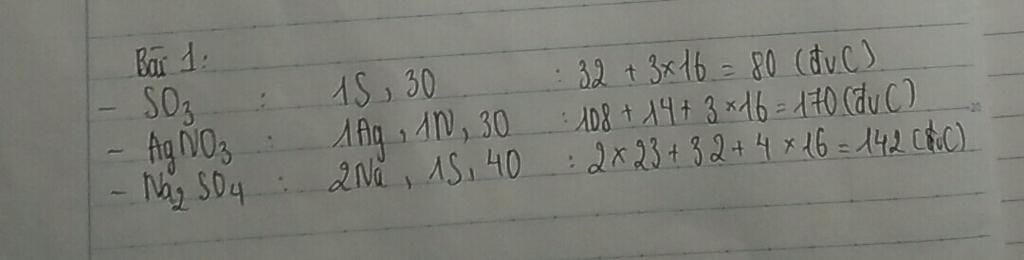 Bài 1:
- SO₃ : 1S, 3O : 32 + 3×16 = 80 (đvC)
- AgNO₃ : 1Ag, 1N, 3O : 108 + 14 + 3×16 = 170 (đvC)
- Na₂SO₄ : 2Na, 1S, 4O : 2×23 + 32 + 4×16 = 142 (đvC)